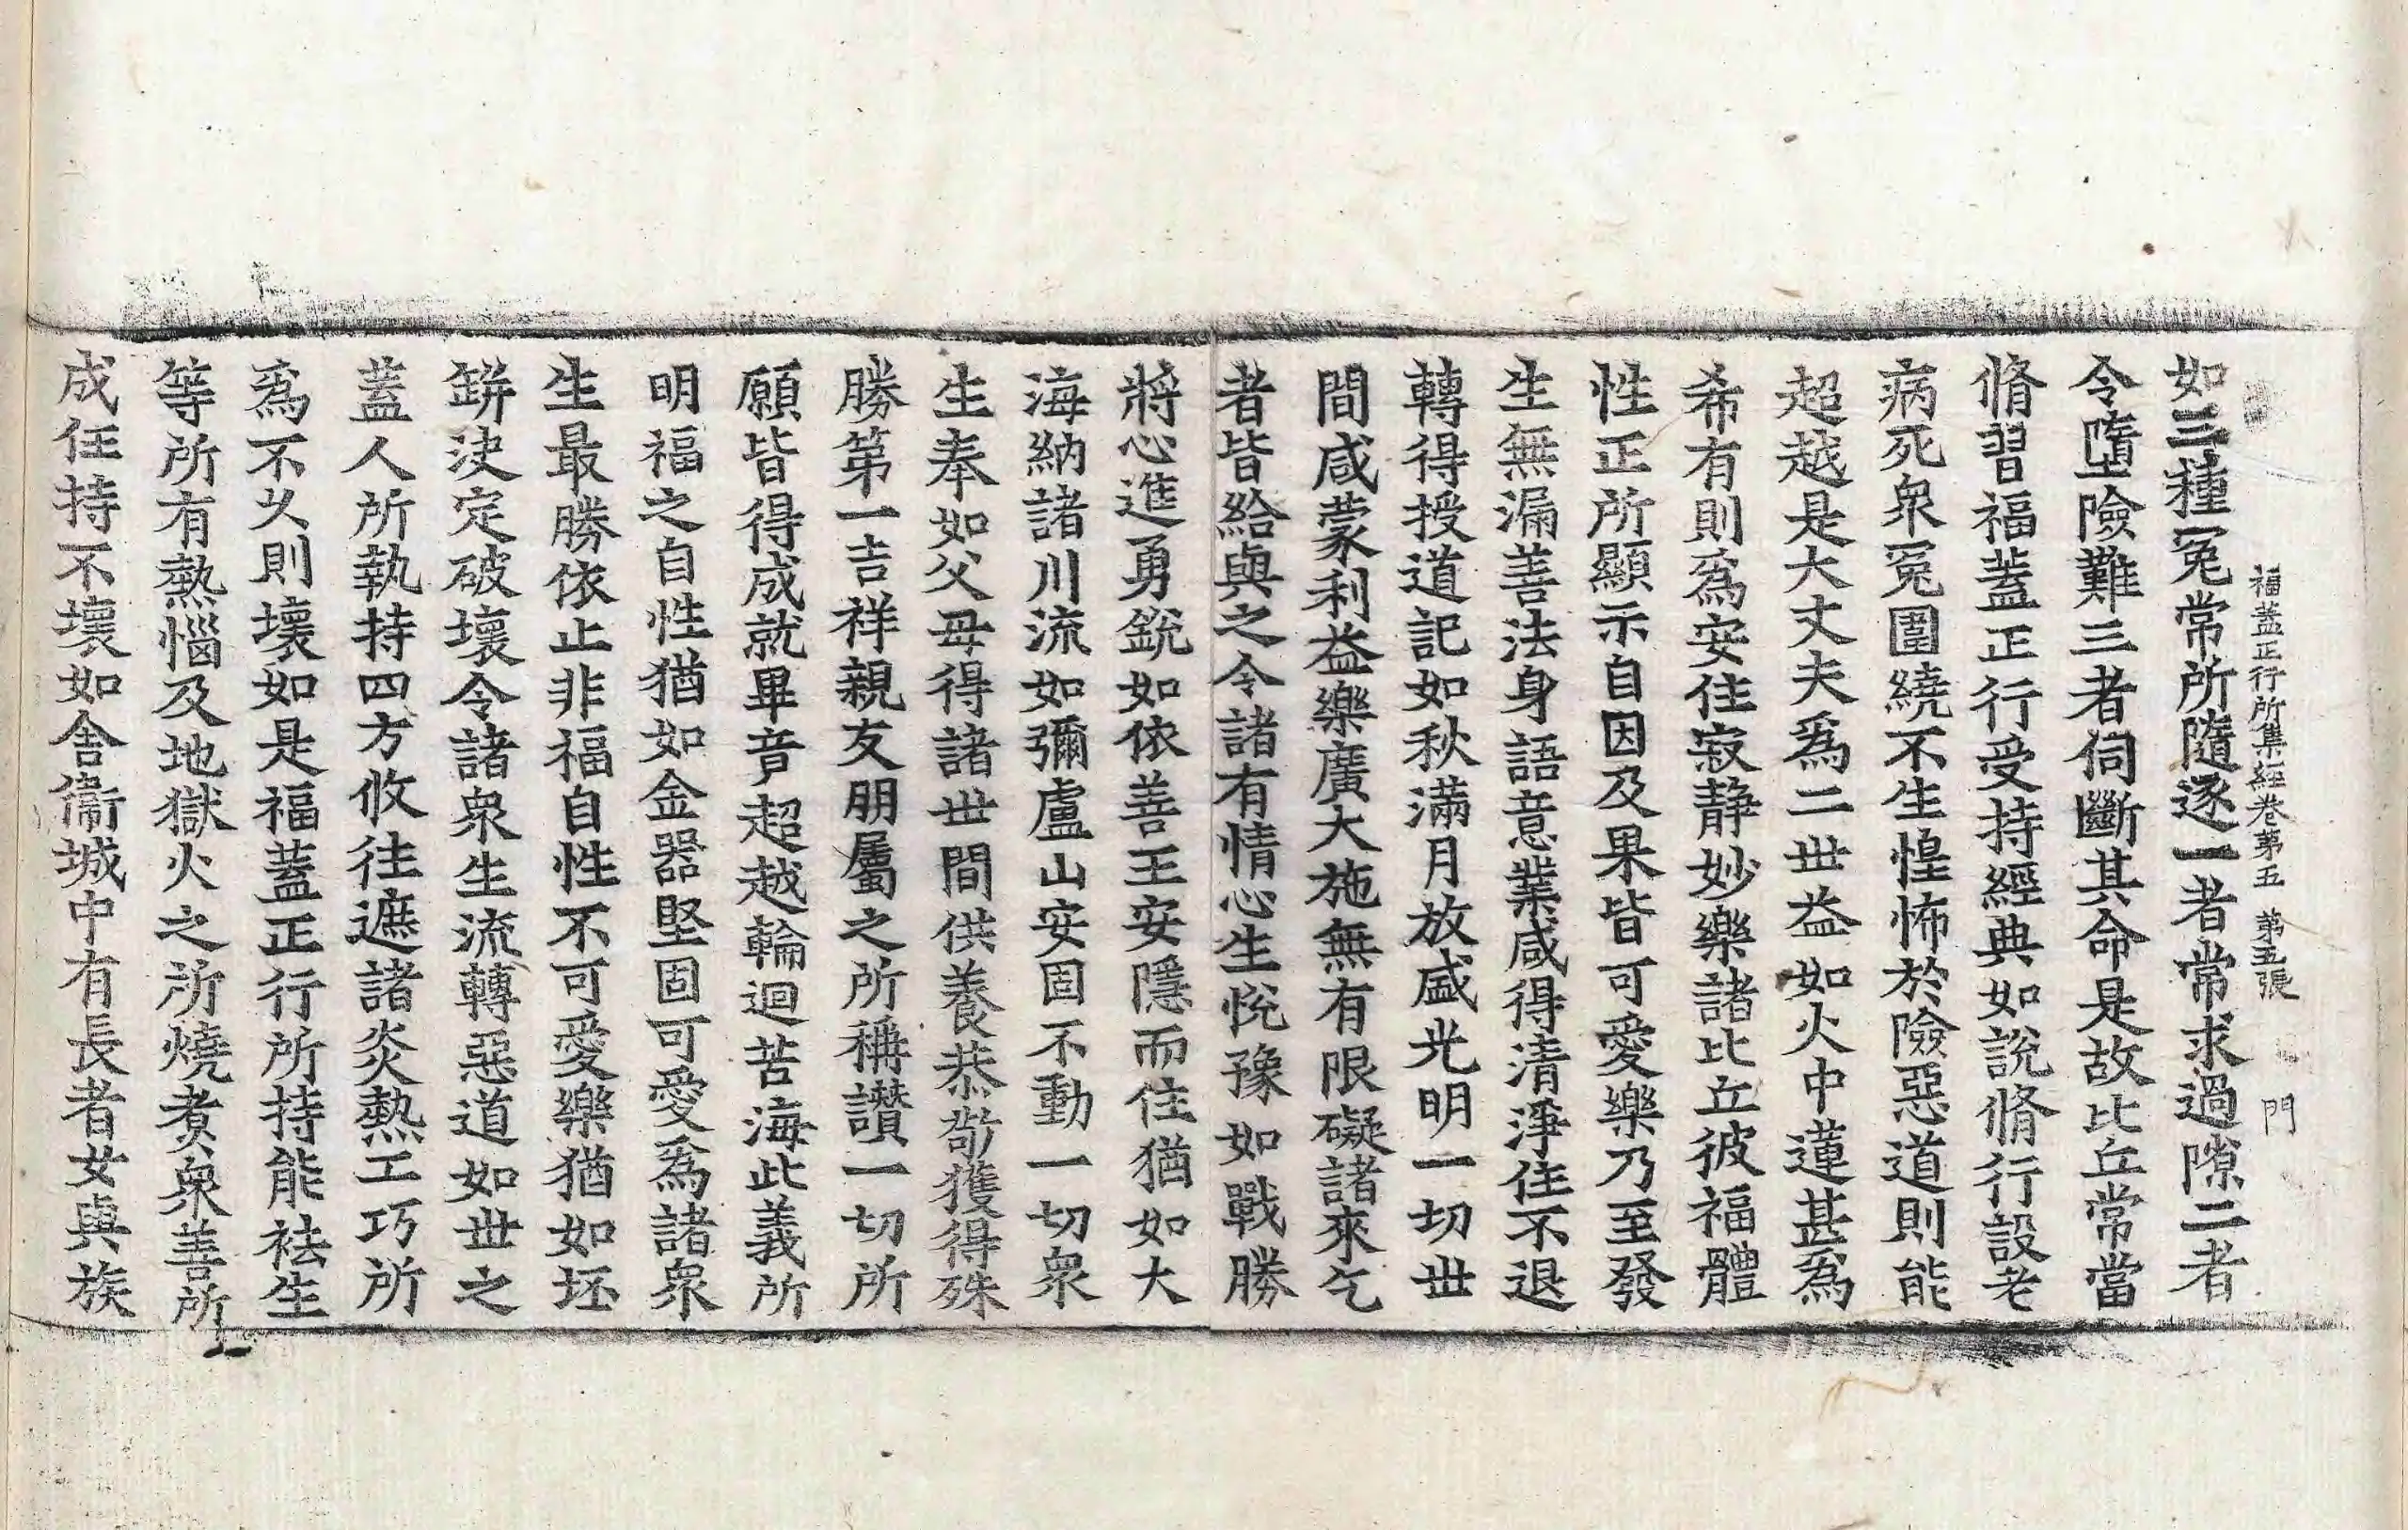 福蓋正行所集經卷第五 第五張 門
如三種冤常所隨逐一者常求過隙二者
令墮險難三者伺斷其命是故比丘常當
脩習福蓋正行受持經典如說脩行設老
病死衆冤圍繞不生惶怖於險惡道則能
超越是大丈夫爲二世益如火中蓮甚爲
希有則爲安住寂靜妙樂諸比丘彼福體
性正所顯示自因及果皆可愛樂乃至發
生無漏善法身語意業咸得清淨住不退
轉得授道記如秋滿月放盛光明一切世
間咸蒙利益樂廣大施無有限礙諸來乞
者皆給與之令諸有情心生悅豫如戰勝
將心進勇銳如依善王安隱而住猶如大
海納諸川流如彌盧山安固不動一切衆
生奉如父母得諸世間供養恭敬獲得殊
勝第一吉祥親友朋屬之所稱讚一切所
願皆得成就畢竟超越輪迴苦海此義所
明福之自性猶如金器堅固可愛爲諸衆
生最勝依止非福自性不可愛樂猶如坯
缾決定破壞令諸衆生流轉惡道如世之
蓋人所執持四方攸往遮諸炎熱工巧所
爲不久則壞如是福蓋正行所持能祛生
等所有熱惱及地獄火之所燒煑衆善所
成任持不壞如舍衞城中有長者女與族